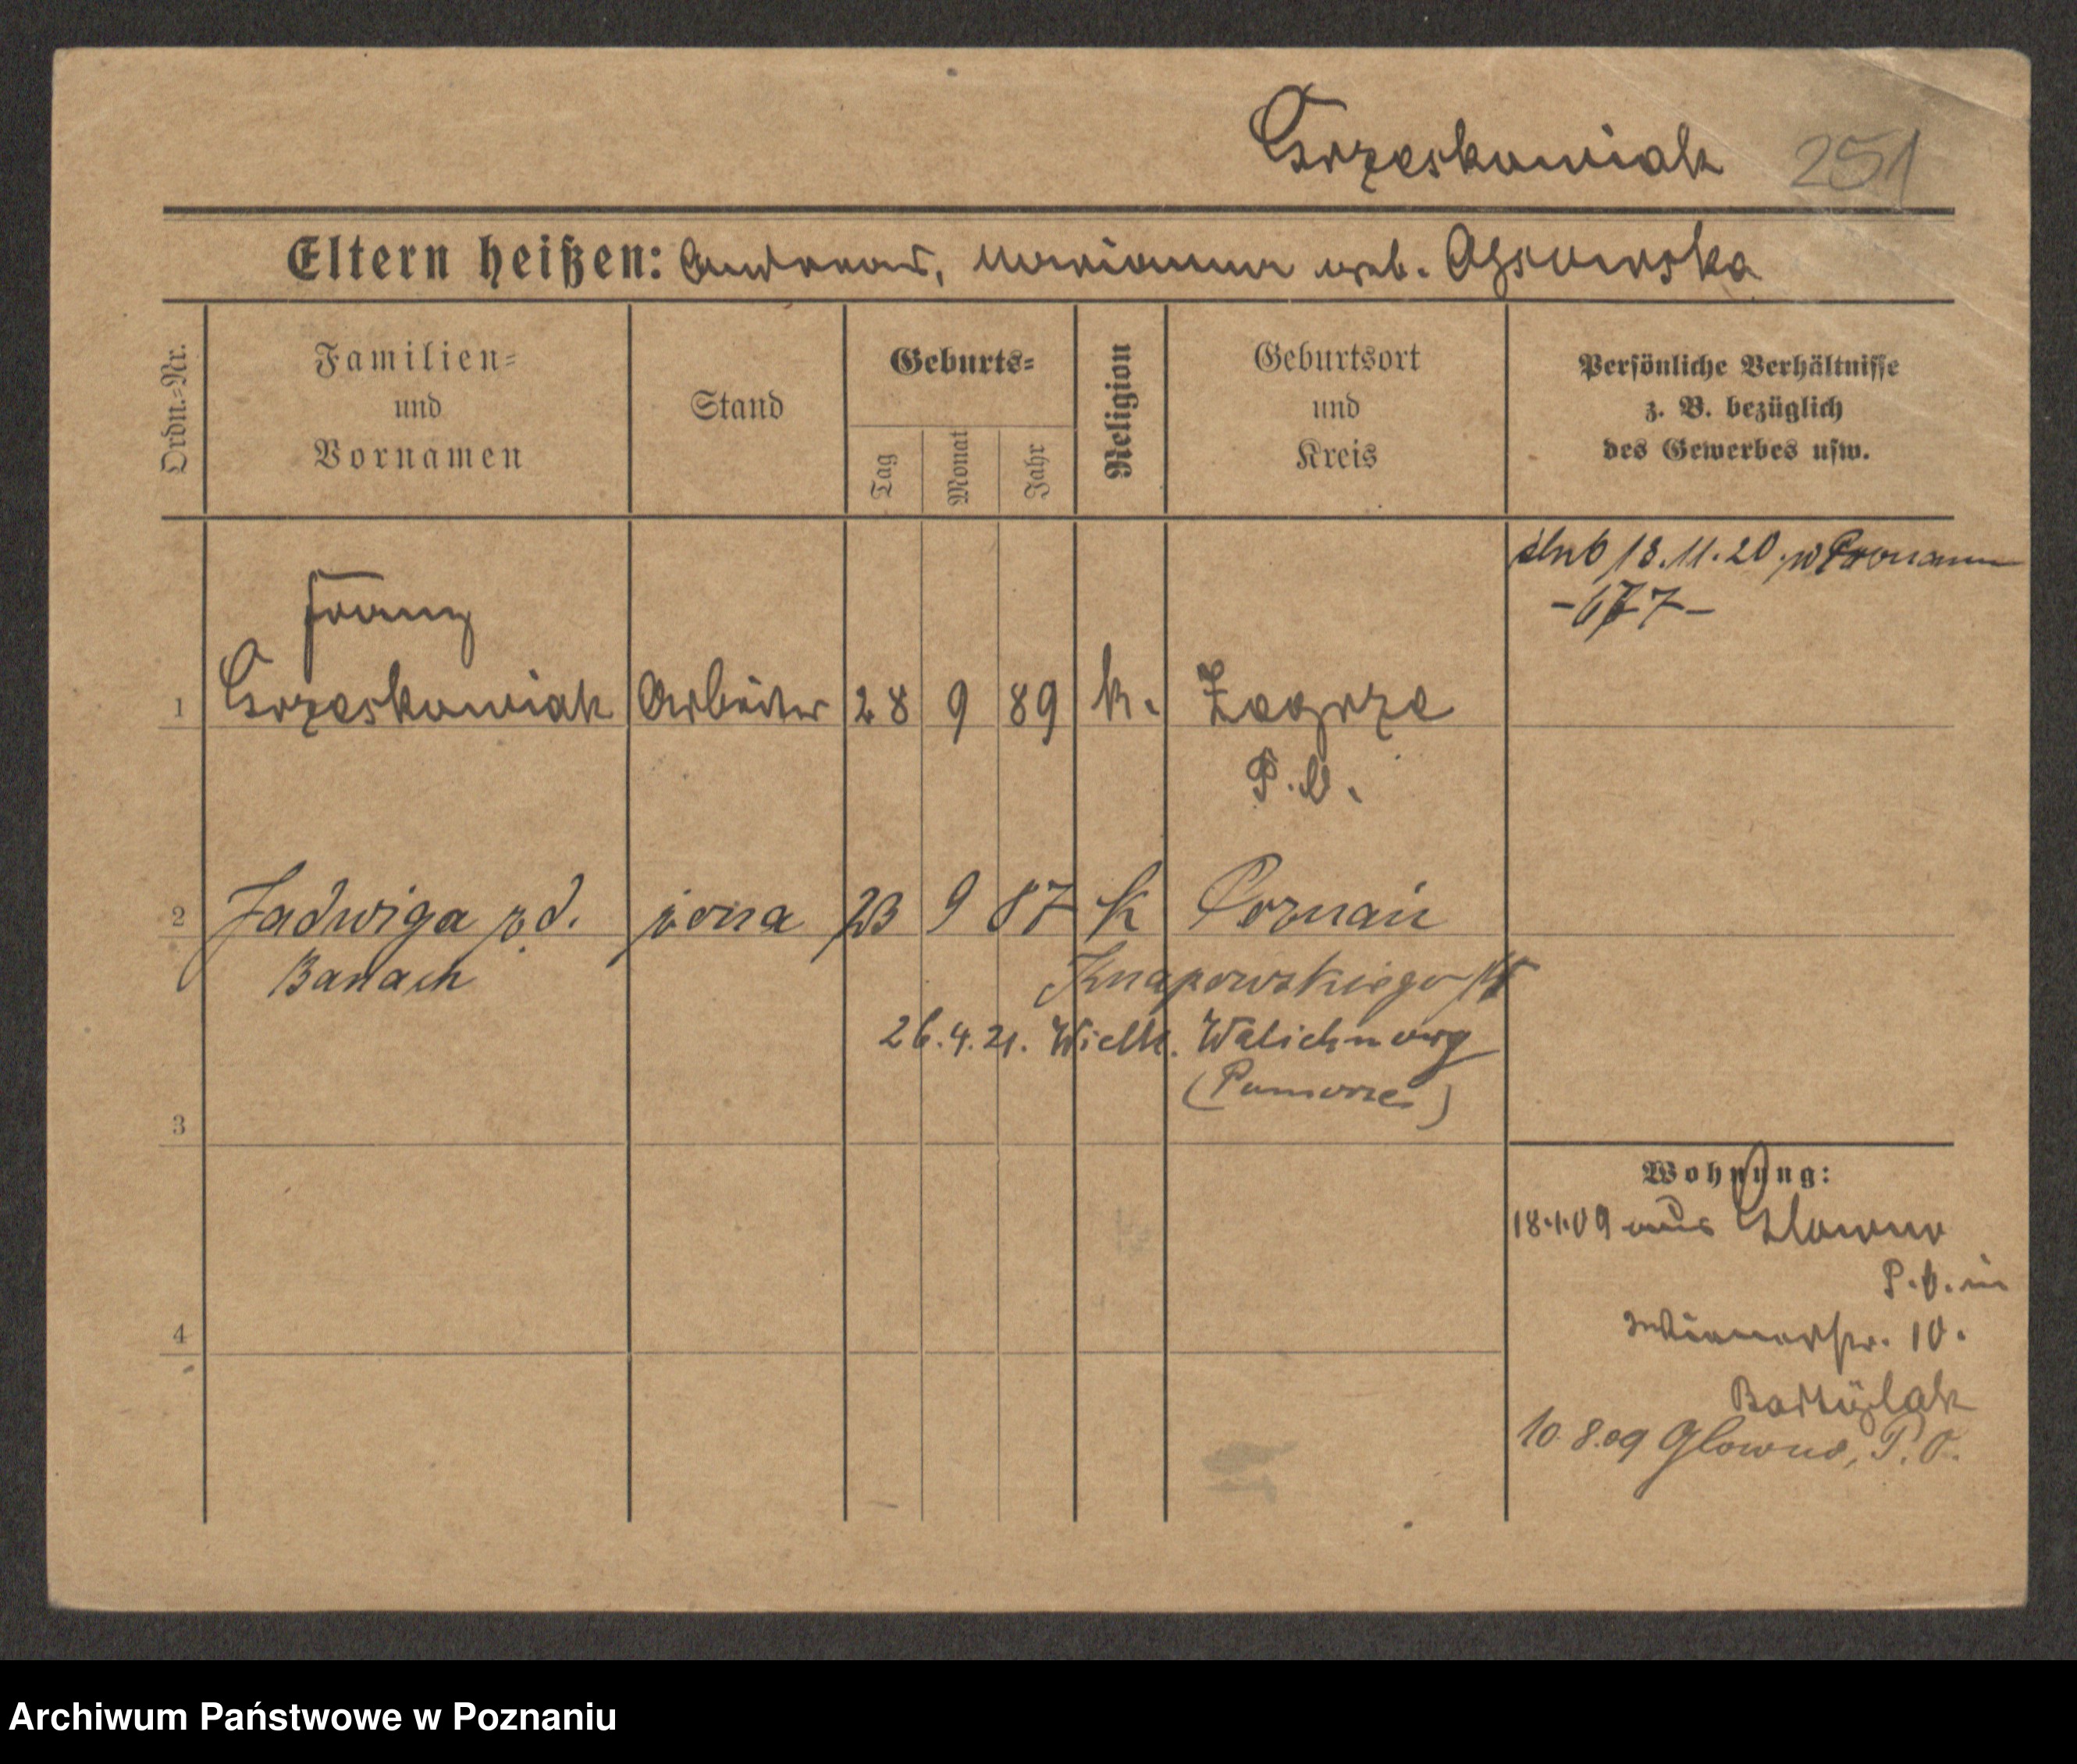 Grzeskowiak 251
Eltern heißen: Andreas, Marianna geb.
Ordn.-Nr.
Familien-
und
Vornamen
Stand
Geburts-
Tag
Monat
Jahr
Religion
Geburtsort
und
Kreis
Persönliche Verhältnisse
z. B. bezüglich
des Gewerbes usw.
ślub 18.11.20. w Poznaniu
Franz
1 Grzeskowiak Arbeiter 28 9 89 k. Zagorze
P. O.
2 Jadwiga z d. żona 23 9 87 k Poznań
Banach
Knapowskiego
26.4.21. Wielk. Walichnowy
(Pomorze)
3
Wohnung:
18.1.09 aus Glowno
P. O. in
4
10.
10.8.09 Glowno, P. O.
Archiwum Państwowe w Poznaniu